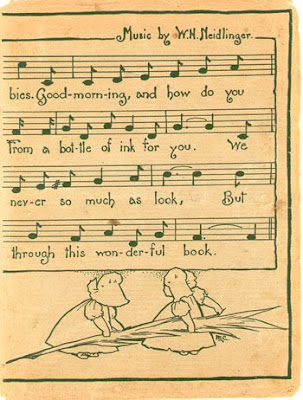 Music by W.H. Neidlinger.
bies. Good-morn-ing, and how do you
From a bot-tle of ink for you. We
nev-er so much as look, But
through this won-der-ful book.